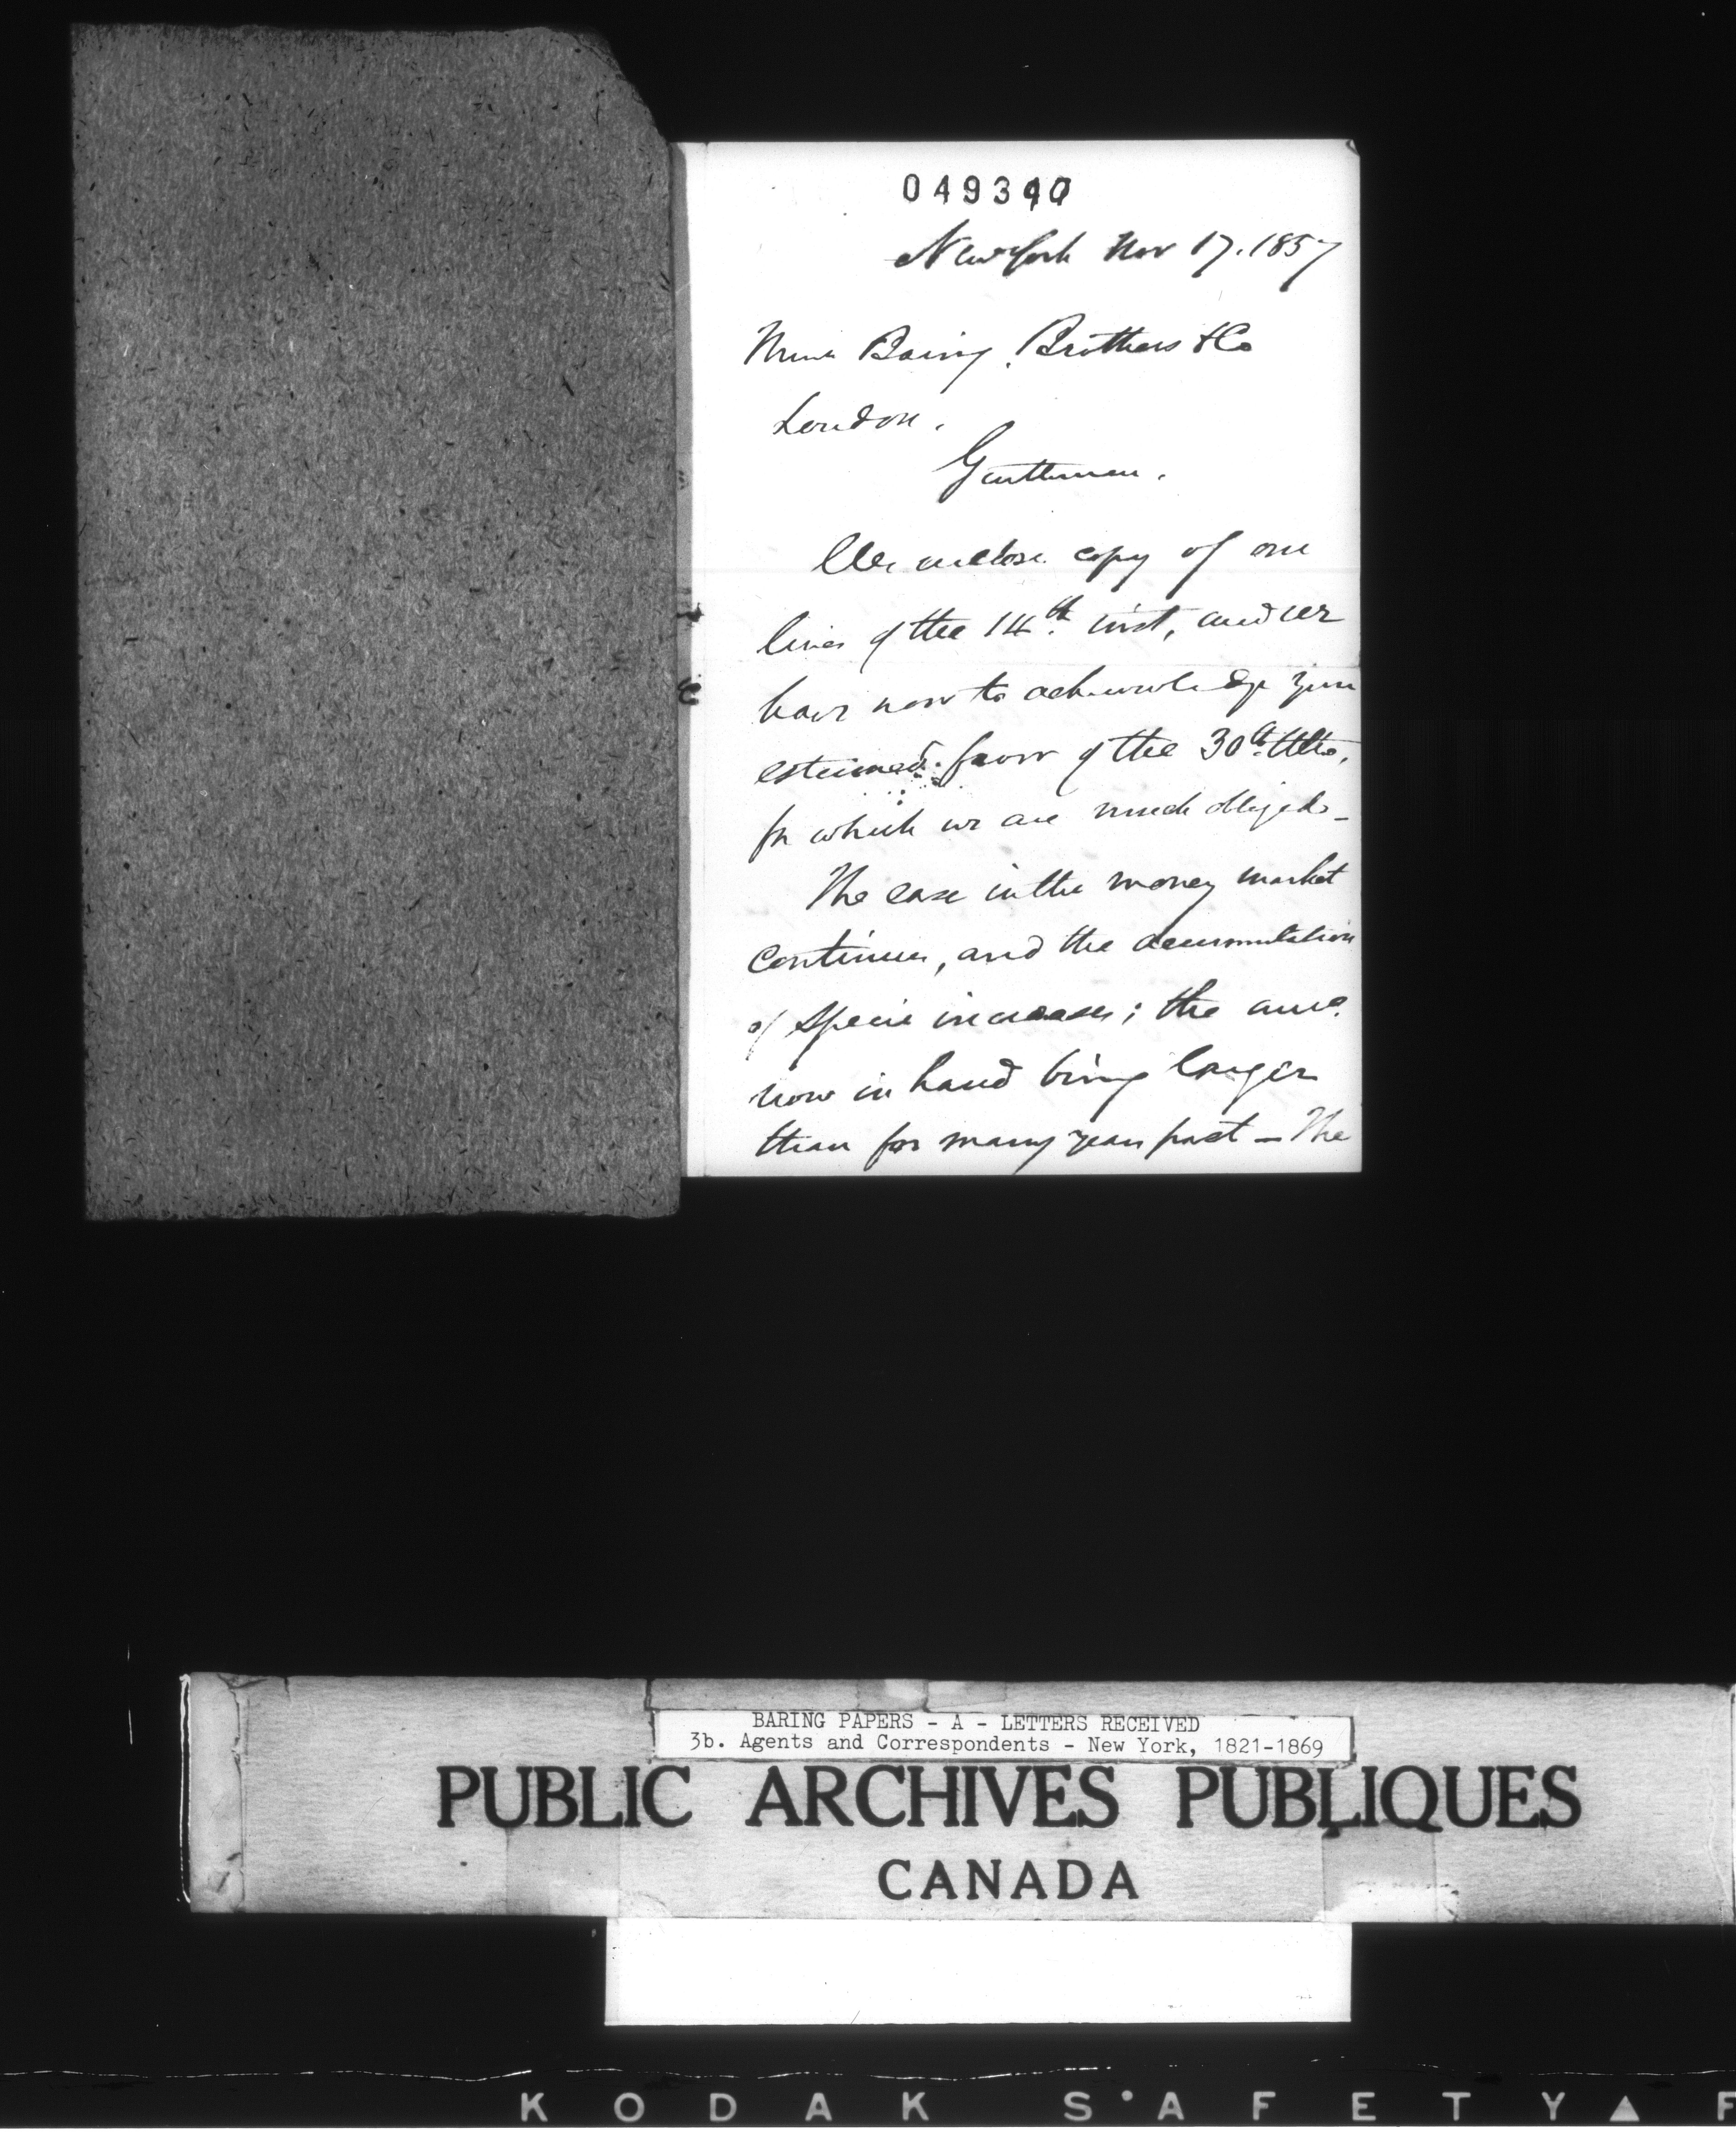 049390
New York Nov 17. 1857
Messrs Baring Brothers & Co
London.
Gentlemen.
We enclose copy of our
lines of the 14th inst, and we
have now to acknowledge your
esteemed favor of the 30th Ulto,
for which we are much obliged.
The ease in the money market
continues, and the accumulation
of specie increases; the amt.
now in hand being larger
than for many years past — The
BARING PAPERS - A - LETTERS RECEIVED
3b. Agents and Correspondents - New York, 1821-1869
PUBLIC ARCHIVES PUBLIQUES
CANADA
KODAK SAFETY▲F